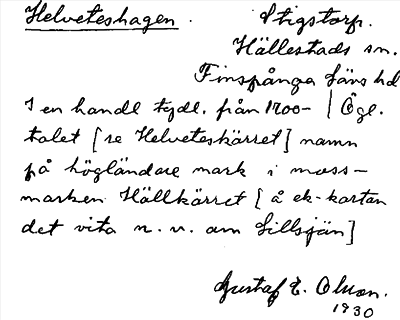 Helveteshagen. Stigstorp.
Hällestads sn.
Finspånga läns hd
I en handl tydl. från 1700- | Ögl.
talet [se Helveteskärret] namn
på högländare mark i moss-
marken Hällkärret [å ek-kartan
det vita n.v. om Lillsjön]
Gustaf E. Olsson.
1930